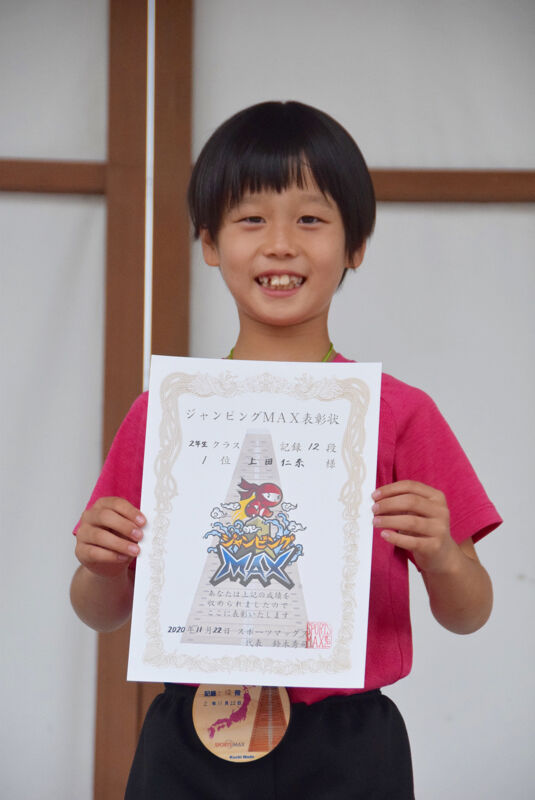 ジャンピングMAX表彰状
2年生 クラス 記録 12 段
1 位 上田 仁 様
ジャンピング
MAX
あなたは上記の成績を
収められましたので
ここに表彰いたします
2020年11月22日 スポーツマックス
代表 鈴木秀
SPORTS
MAX
記録: 12 段
SPORTSMAX